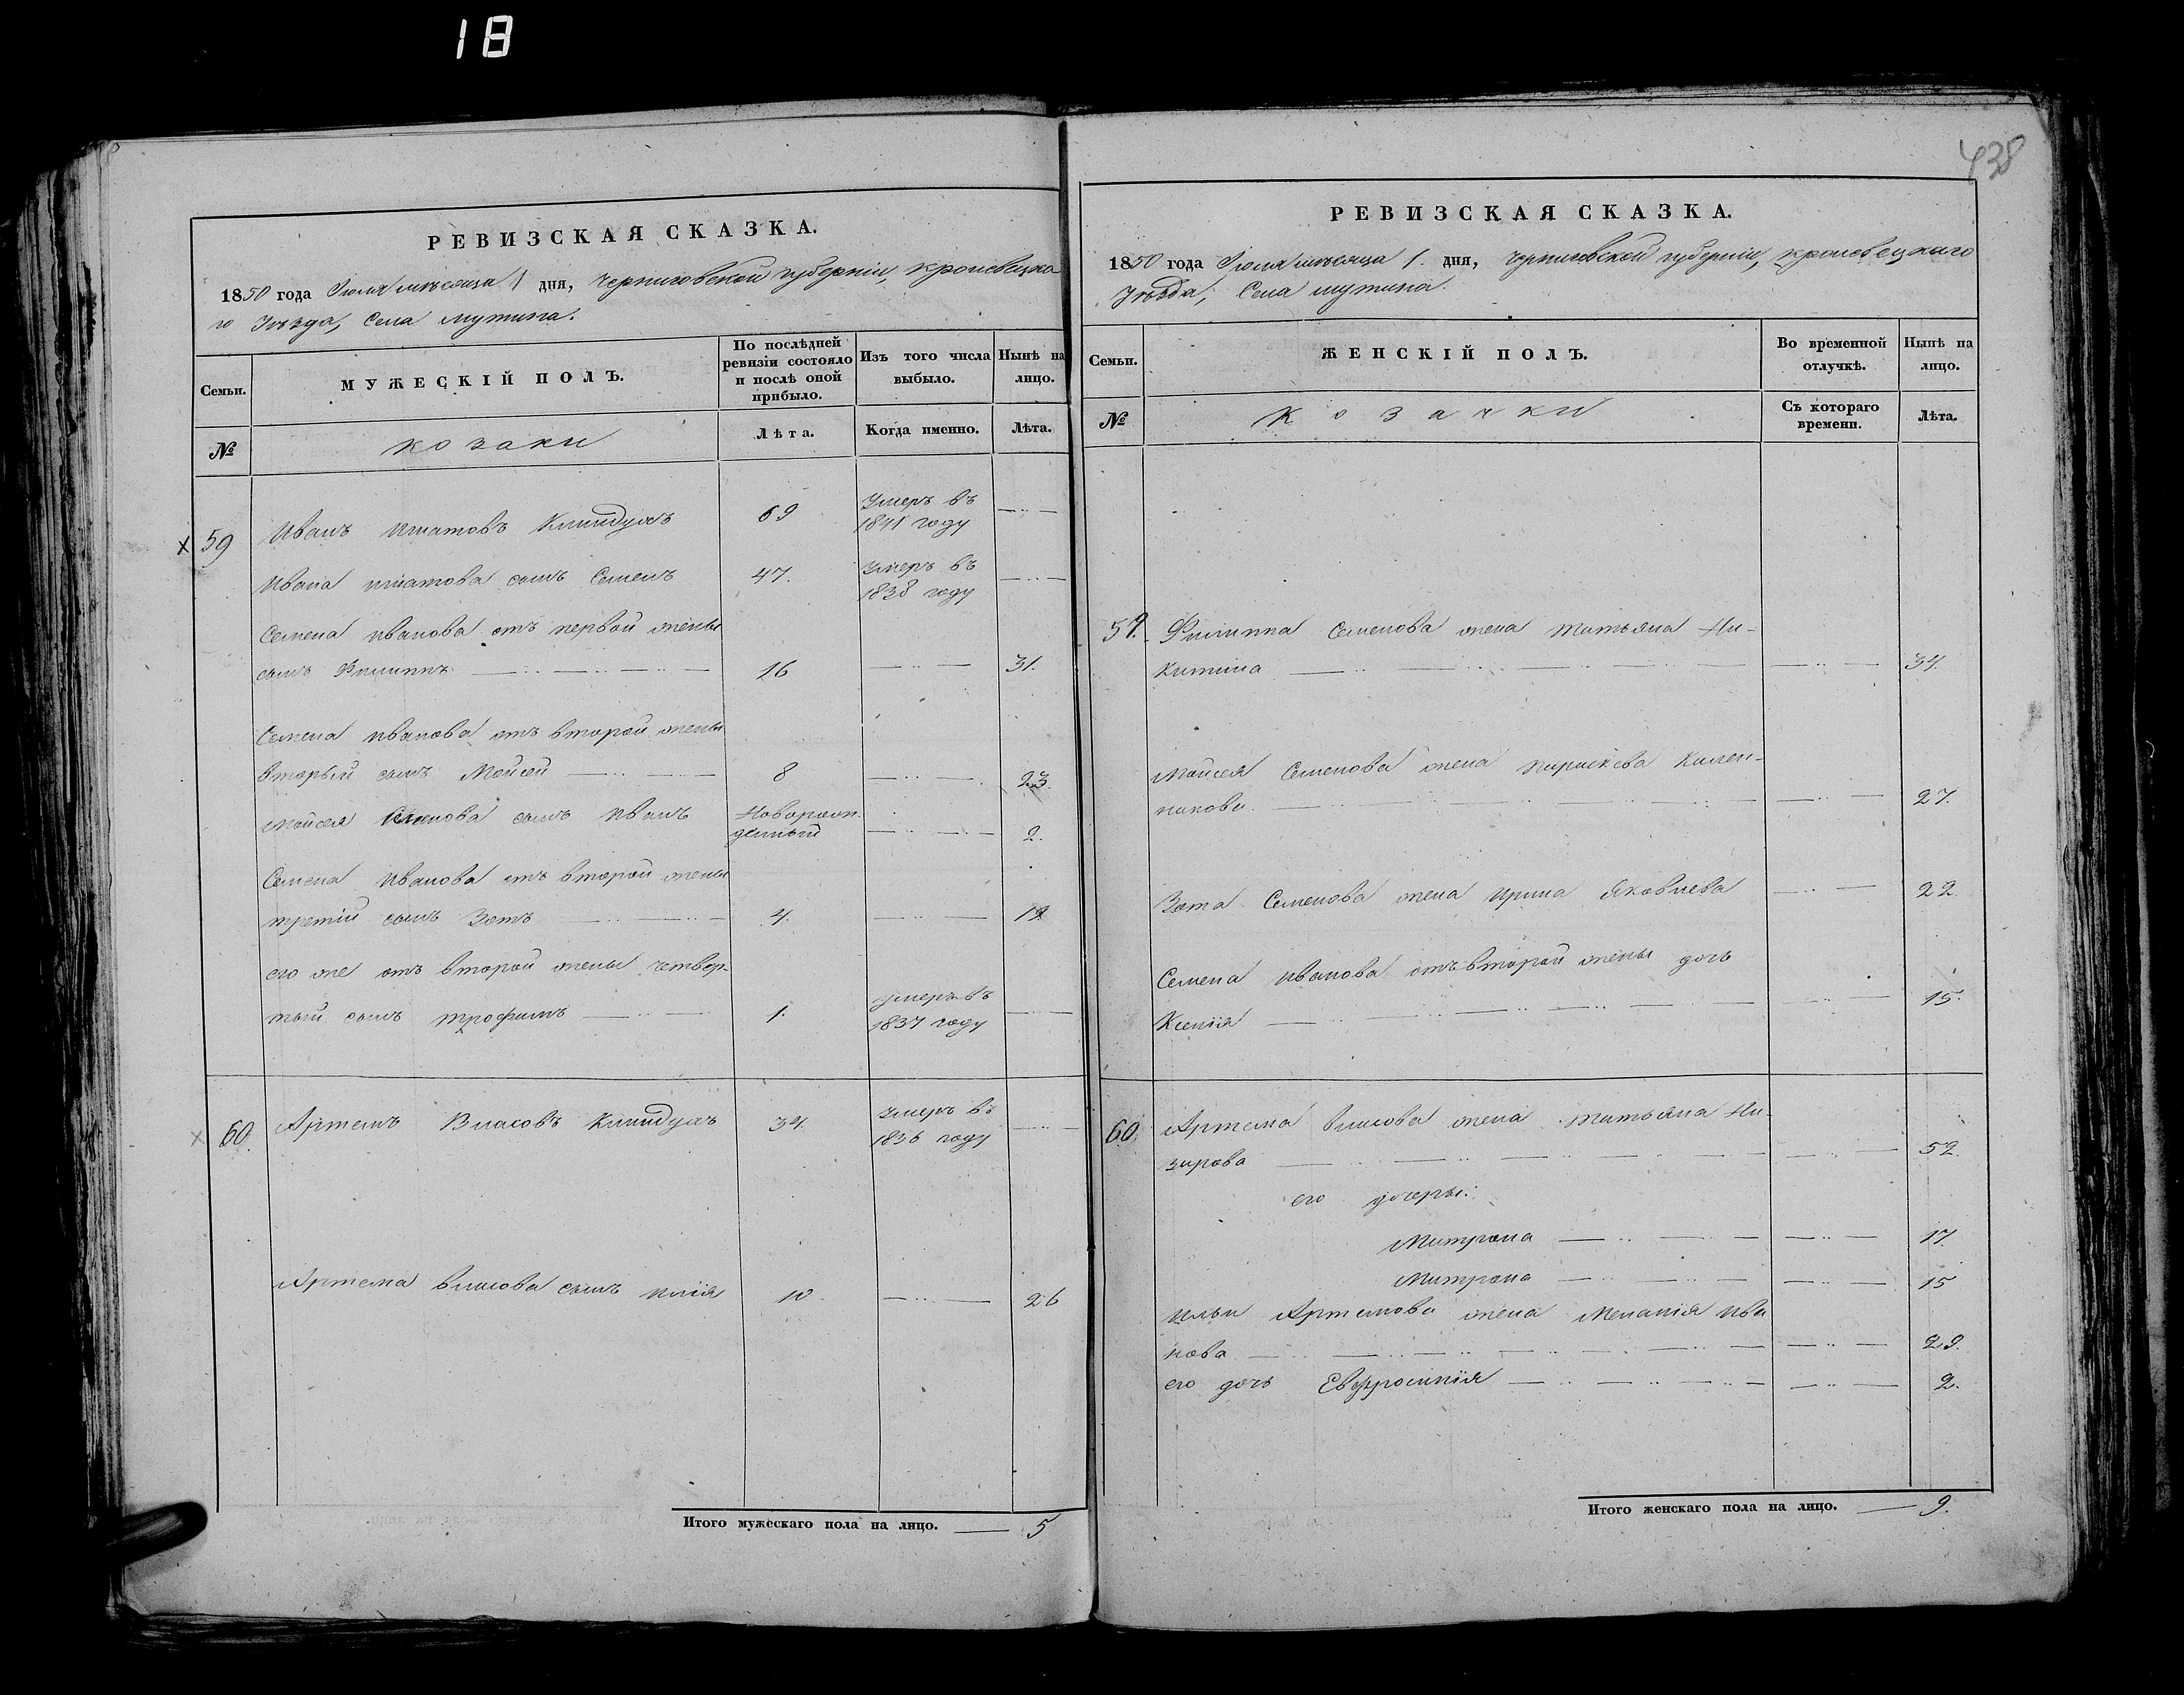 18
438
РЕВИЗСКАЯ СКАЗКА.
1850 года Іюля мѣсяца 1 дня, Черниговской губерніи, Кролевецка
го Уѣзда, Села Мутина.
Семьи.
МУЖЕСКІЙ ПОЛЪ.
По послѣдней ревизіи состояло и послѣ оной прибыло.
Изъ того числа выбыло.
Нынѣ на лицо.
№
козаки
Лѣта.
Когда именно.
Лѣта.
59 Иванъ Игнатовъ 69 Умеръ въ
1841 году
Ивана Игнатова сынъ Семенъ 47. Умеръ въ
1838 году
Семена Иванова отъ первой жены
сынъ Филиппъ 16 31.
Семена Иванова отъ второй жены
вторый сынъ Мойсей 8 23.
Мойсея Семенова сынъ Иванъ Новорож
денный 2.
Семена Иванова отъ второй жены
третій сынъ Зотъ 4. 19
его же отъ второй жены четвер-
тый сынъ Трофимъ 1. умеръ въ
1837 году
60. Артемъ Власовъ 34. Умеръ въ
1836 году
Артема Власова сынъ Илія 10 26
Итого мужескаго пола на лицо. 5
РЕВИЗСКАЯ СКАЗКА.
1850 года Іюля мѣсяца 1. дня, Черниговской губерніи, Кролевецкаго
Уѣзда, Села Мутина.
Семьи.
ЖЕНСКІЙ ПОЛЪ.
Во временной отлучкѣ.
Нынѣ на лицо.
№
Козачки
Съ котораго времени.
Лѣта.
59. Филиппа Семенова жена Татьяна Ни-
китина 34.
Мойсея Семенова жена Параскева
27.
Зота Семенова жена Ирина Яковлева 22.
Семена Иванова отъ второй жены дочь
Ксенія 15.
60. Артема Власова жена Татьяна На-
зарова 52.
его дочери:
Матрона 17.
Матрона 15
Ильи Артемова жена Меланія Ива
нова 29.
его дочь Евфросинія 2.
Итого женскаго пола на лицо. 9.